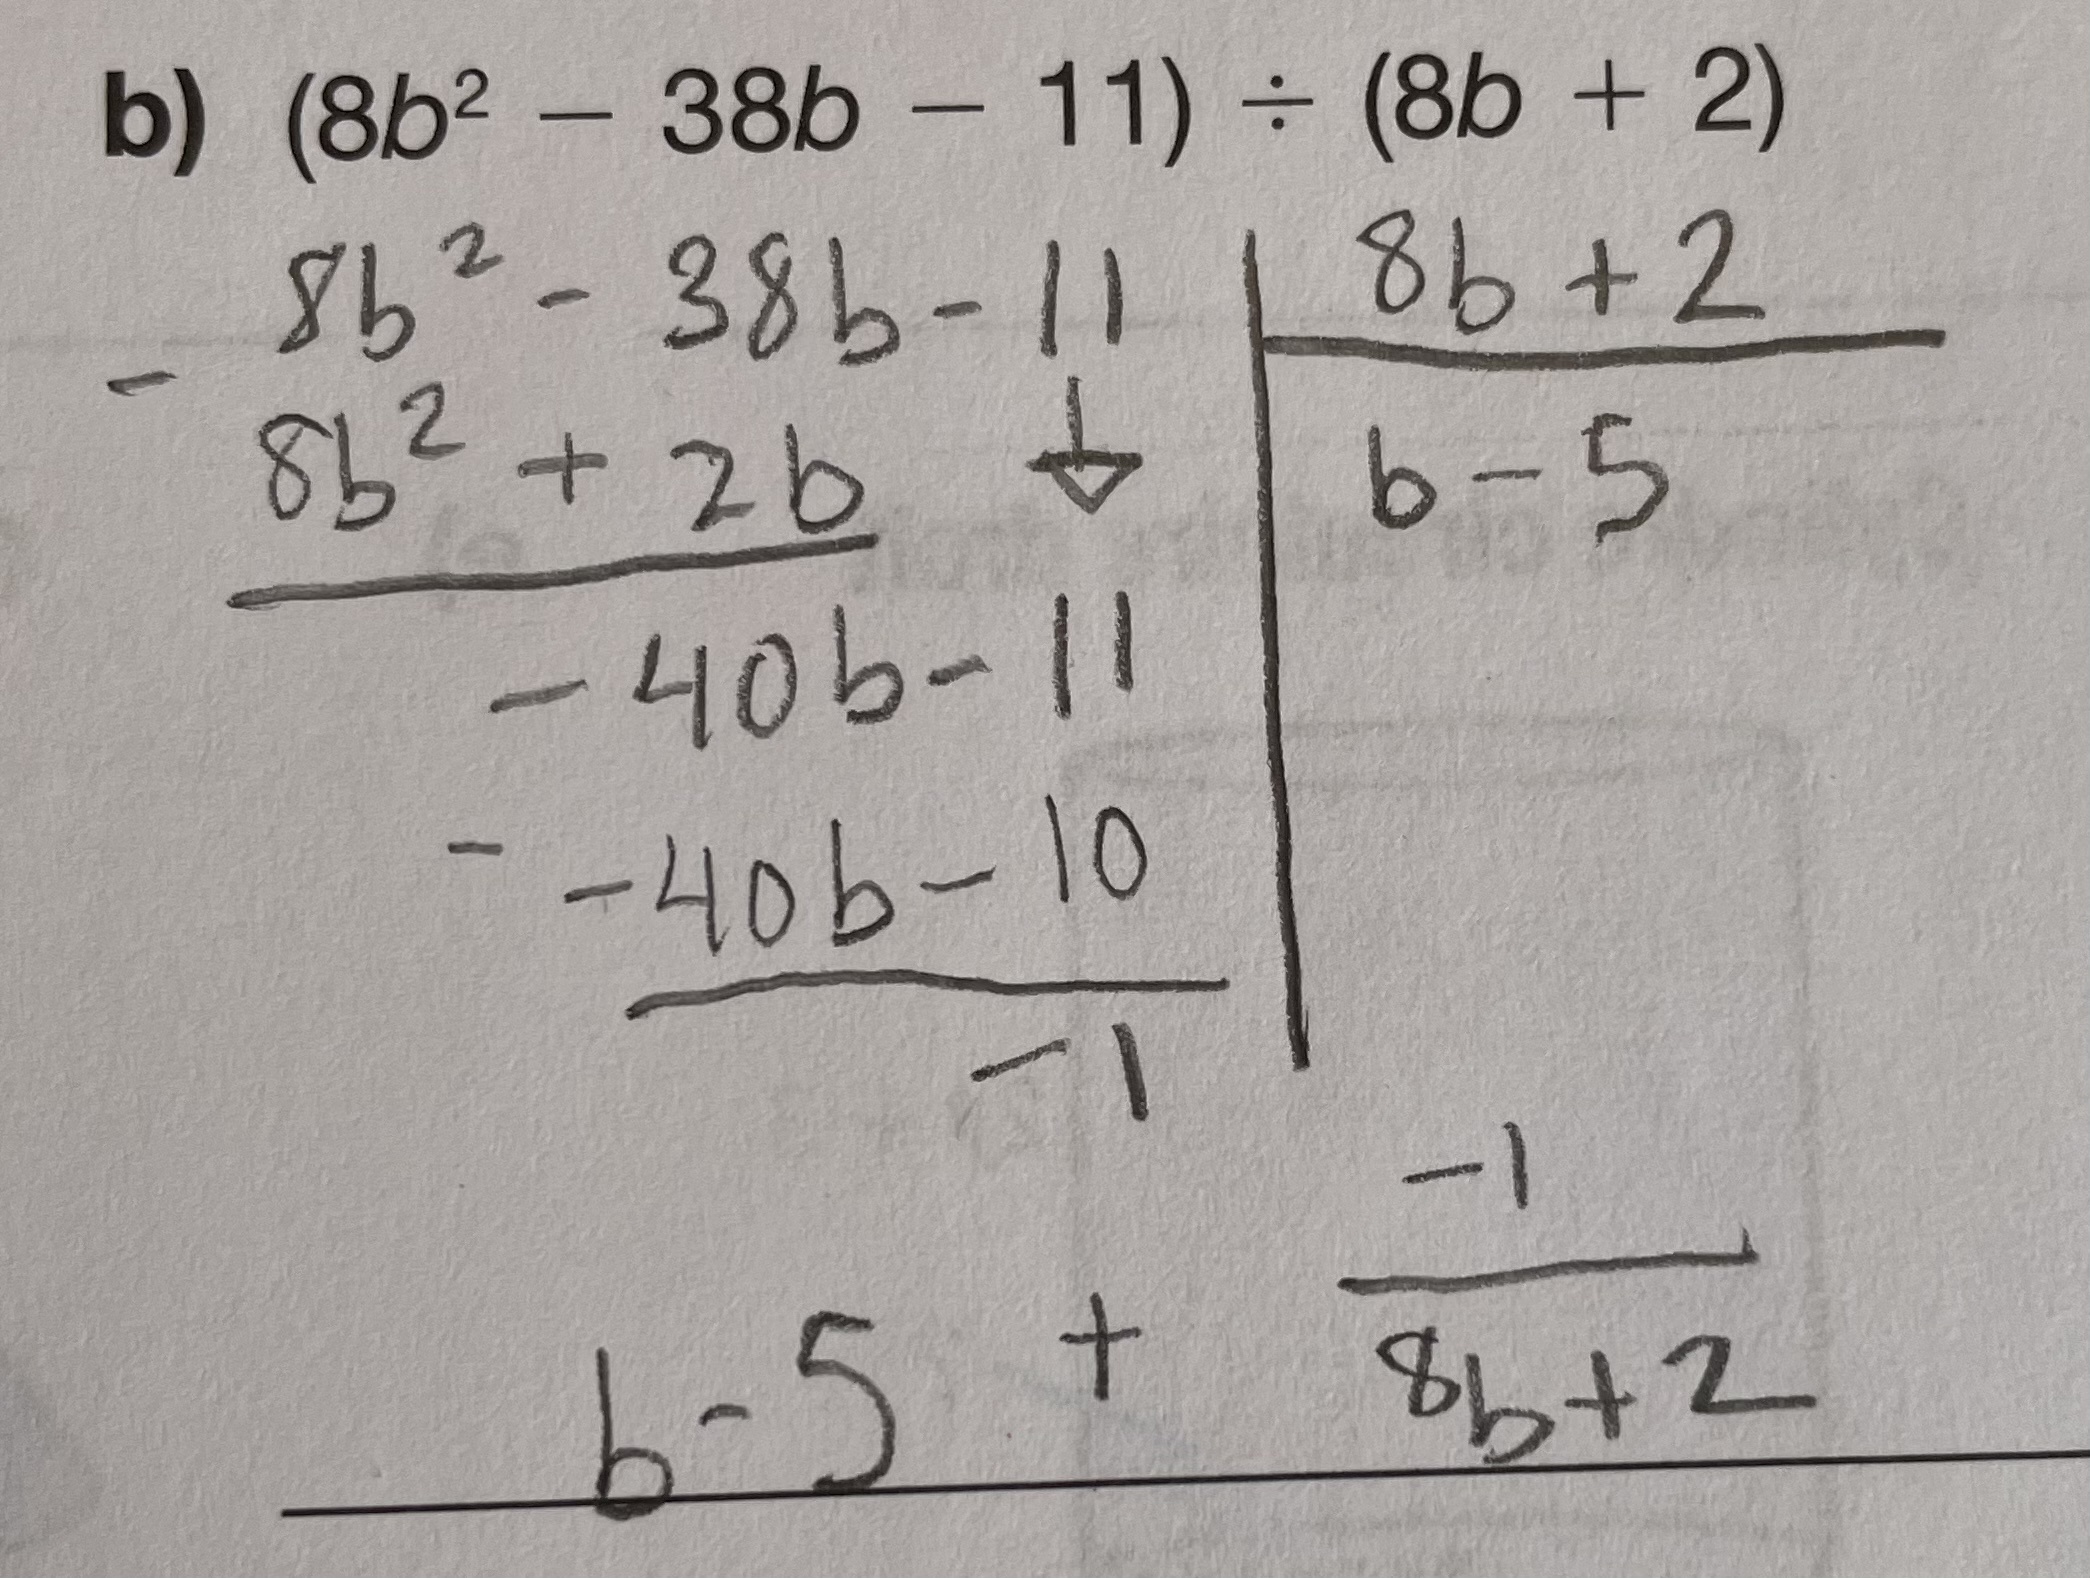 b) (8b² − 38b − 11) ÷ (8b + 2)
8b² - 38b - 11 | 8b + 2
- 8b² + 2b ↓ | b - 5
- 40b - 11
- - 40b - 10
- 1
b - 5 + -1 / 8b + 2